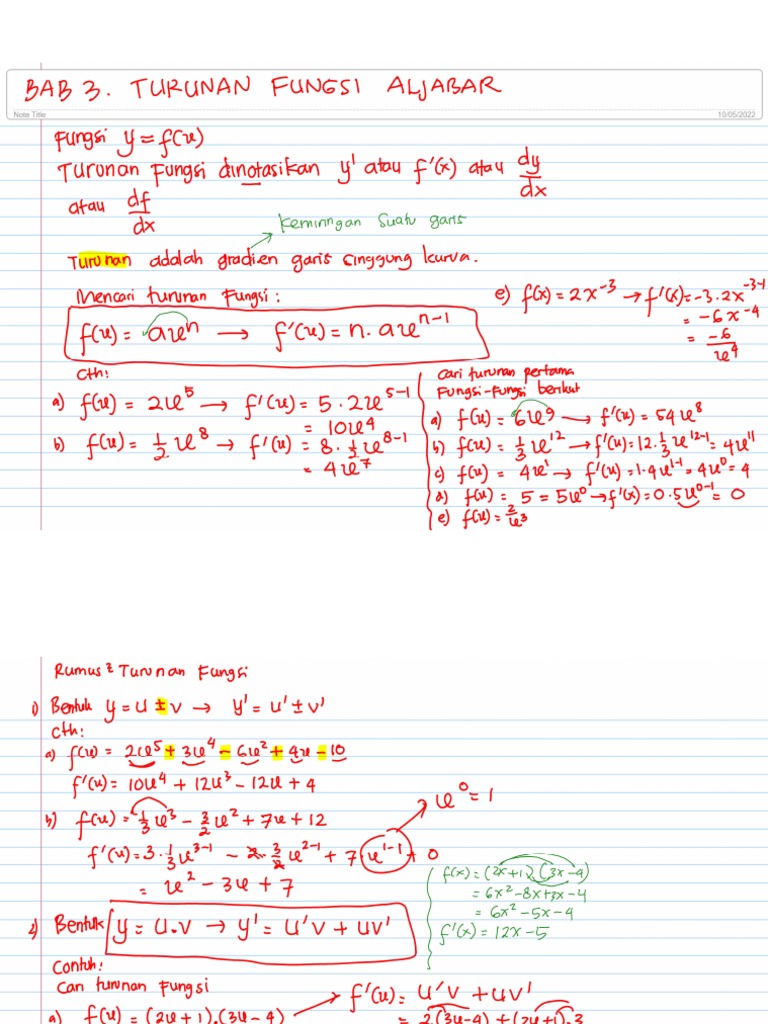 BAB 3. TURUNAN FUNGSI ALJABAR
Note Title
10/05/2022
Fungsi y = f(x)
Turunan Fungsi dinotasikan y' atau f'(x) atau dy/dx
atau df/dx
Kemiringan suatu garis
Turunan adalah gradien garis singgung kurva.
Mencari turunan Fungsi:
f(x) = ax^n → f'(x) = n. ax^(n-1)
Cth:
a) f(x) = 2x^5 → f'(x) = 5.2x^(5-1)
= 10x^4
b) f(x) = 1/2 x^8 → f'(x) = 8. 1/2 x^(8-1)
= 4x^7
e) f(x) = 2x^-3 → f'(x) = -3.2x^(-3-1)
= -6x^-4
= -6/x^4
Cari turunan pertama
Fungsi-Fungsi berikut
a) f(x) = 6x^9 → f'(x) = 54x^8
b) f(x) = 1/3 x^12 → f'(x) = 12. 1/3 x^(12-1) = 4x^11
c) f(x) = 4x^1 → f'(x) = 1.4x^(1-1) = 4x^0 = 4
d) f(x) = 5 = 5x^0 → f'(x) = 0.5x^(0-1) = 0
e) f(x) = 2/x^3
Rumus² Turunan Fungsi
1) Bentuk y = u ± v → y' = u' ± v'
Cth:
a) f(x) = 2x^5 + 3x^4 - 6x^2 + 4x - 10
f'(x) = 10x^4 + 12x^3 - 12x + 4
b) f(x) = 1/3 x^3 - 3/2 x^2 + 7x + 12
x^0 = 1
f'(x) = 3. 1/3 x^(3-1) - 2. 3/2 x^(2-1) + 7 x^(1-1) + 0
= x^2 - 3x + 7
f(x) = (2x+1)(3x-4)
= 6x^2 - 8x + 3x - 4
= 6x^2 - 5x - 4
f'(x) = 12x - 5
2) Bentuk y = u.v → y' = u'v + uv'
Contoh:
Cari turunan Fungsi
a) f(x) = (2x+1).(3x-4)
f'(x) = u'v + uv'
= 2(3x-4) + (2x+1).3